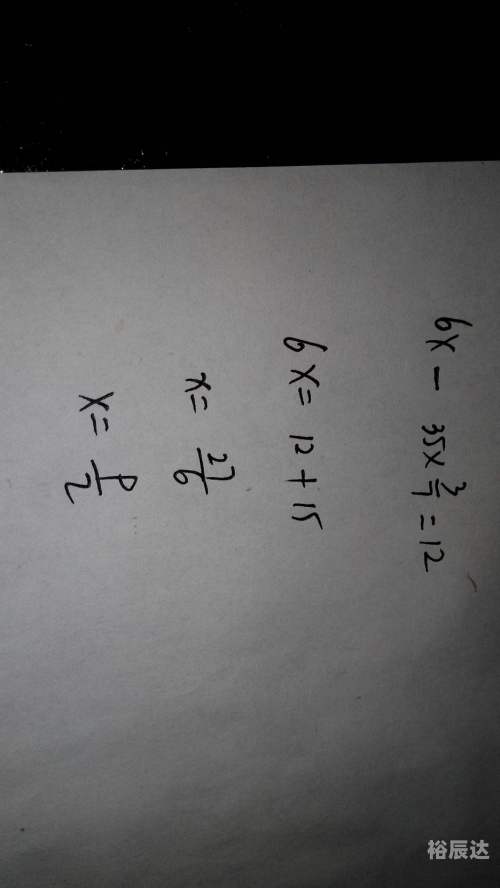 6x - 35 × 3/7 = 12
6x = 12 + 15
x = 27/6
x = 9/2
裕辰达